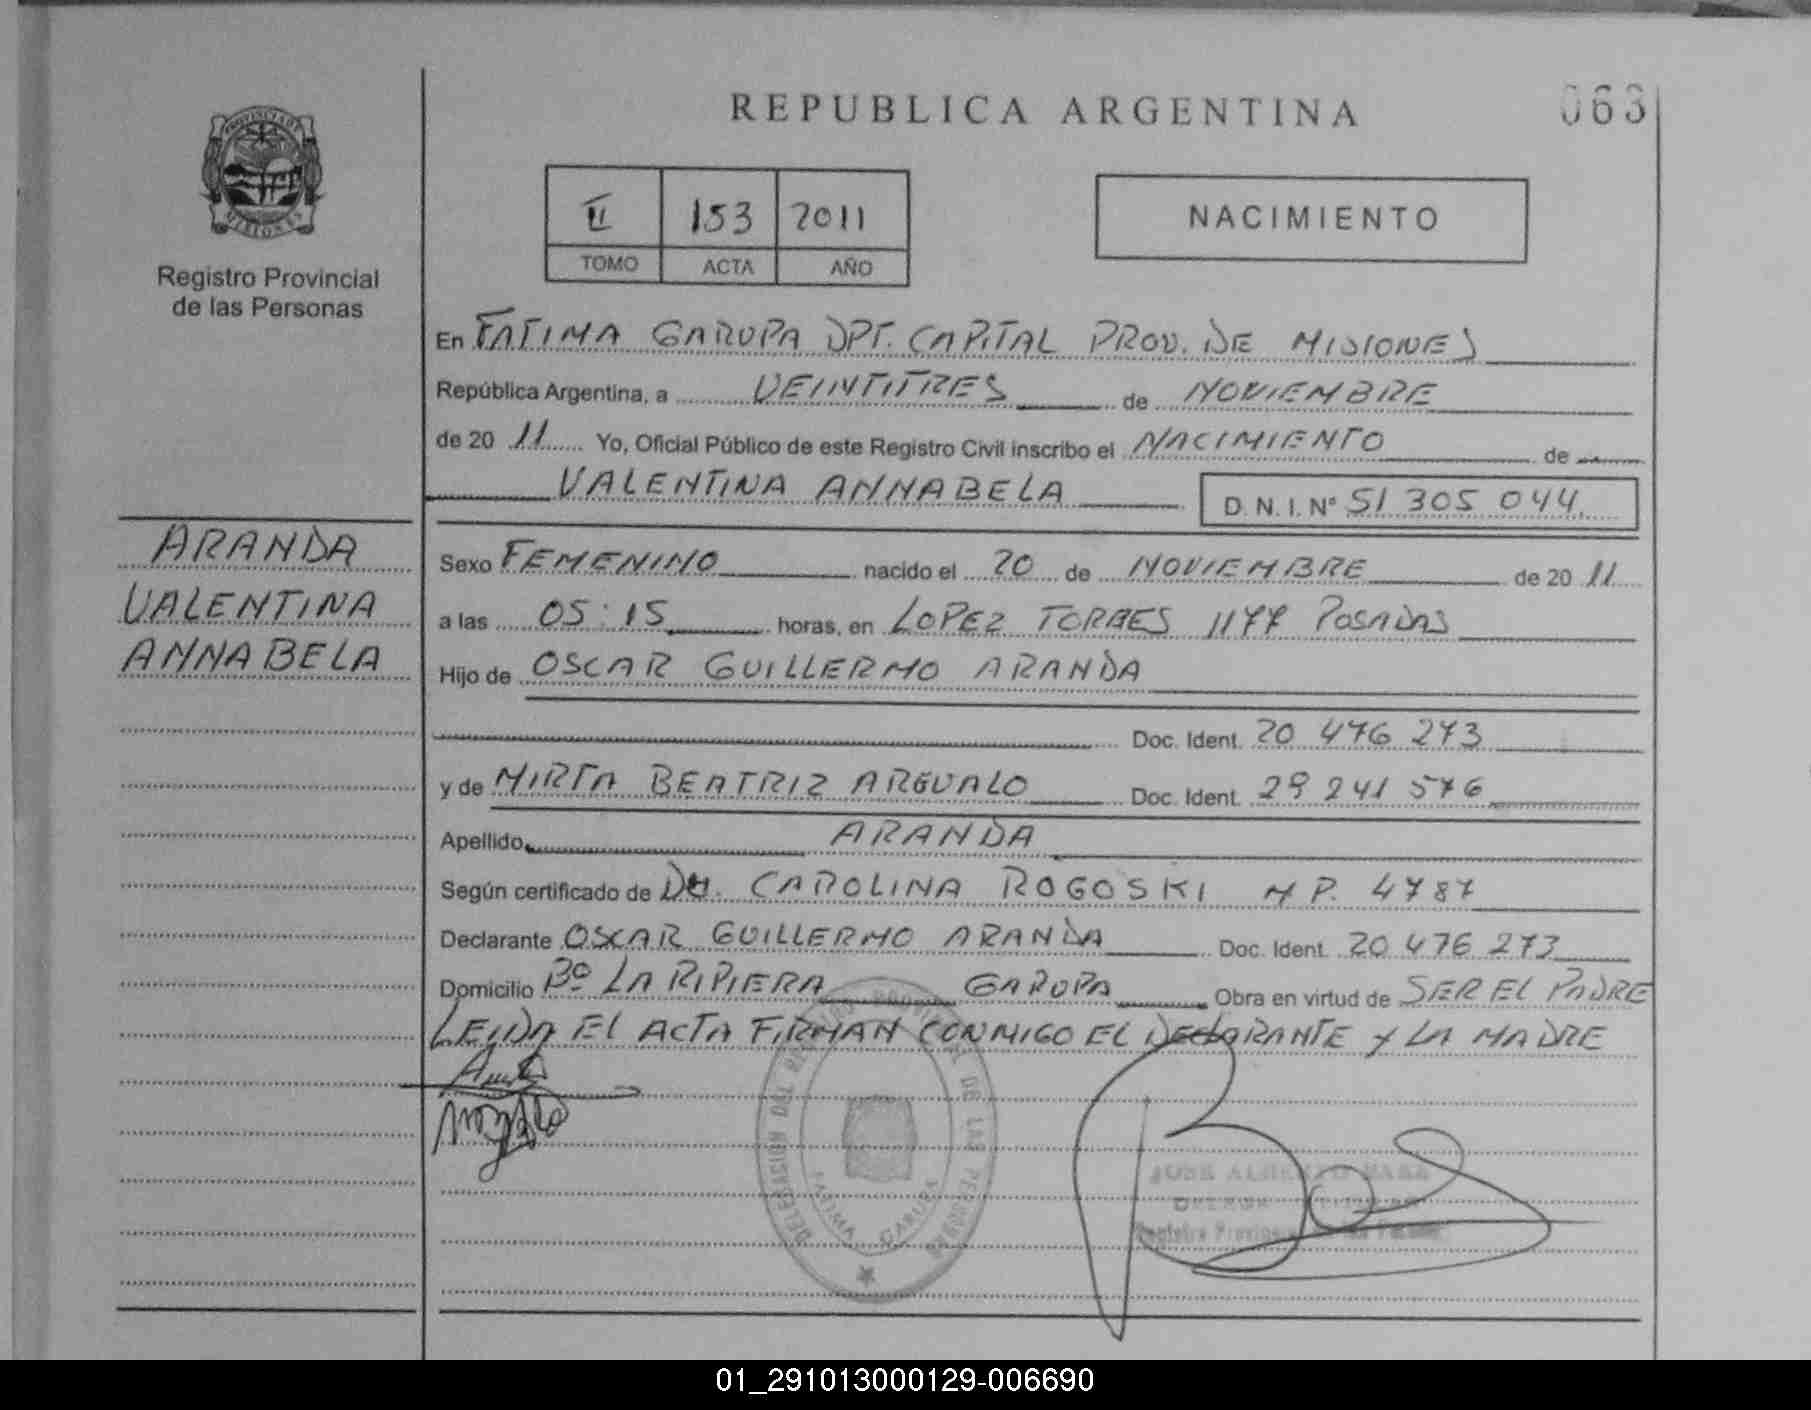 REPUBLICA ARGENTINA
063
PROVINCIA DE
MISIONES
Registro Provincial
de las Personas
II 153 2011
TOMO ACTA AÑO
NACIMIENTO
En FATIMA GARUPA DPT. CAPITAL PROV. DE MISIONES
República Argentina, a VEINTITRES de NOVIEMBRE
de 20 11 Yo, Oficial Público de este Registro Civil inscribo el NACIMIENTO de
VALENTINA ANNABELA D. N. I. Nº 51 305 044
ARANDA
VALENTINA
ANNABELA
Sexo FEMENINO nacido el 20 de NOVIEMBRE de 20 11
a las 05:15 horas, en LOPEZ TORRES 1177 POSADAS
Hijo de OSCAR GUILLERMO ARANDA
Doc. Ident. 20 476 273
y de MIRTA BEATRIZ AREVALO Doc. Ident. 29 241 576
Apellido ARANDA
Según certificado de CAROLINA ROGOSKI M P. 4787
Declarante OSCAR GUILLERMO ARANDA Doc. Ident. 20 476 273
Domicilio Bº LA RIPIERA GARUPA Obra en virtud de SER EL PADRE
LEIDA EL ACTA FIRMAN CONMIGO EL DECLARANTE Y LA MADRE
DELEGACION DEL REGISTRO PROVINCIAL DE LAS PERSONAS
FATIMA GARUPA
JOSE ALBERTO
Registro Provincial de las Personas
01_291013000129-006690